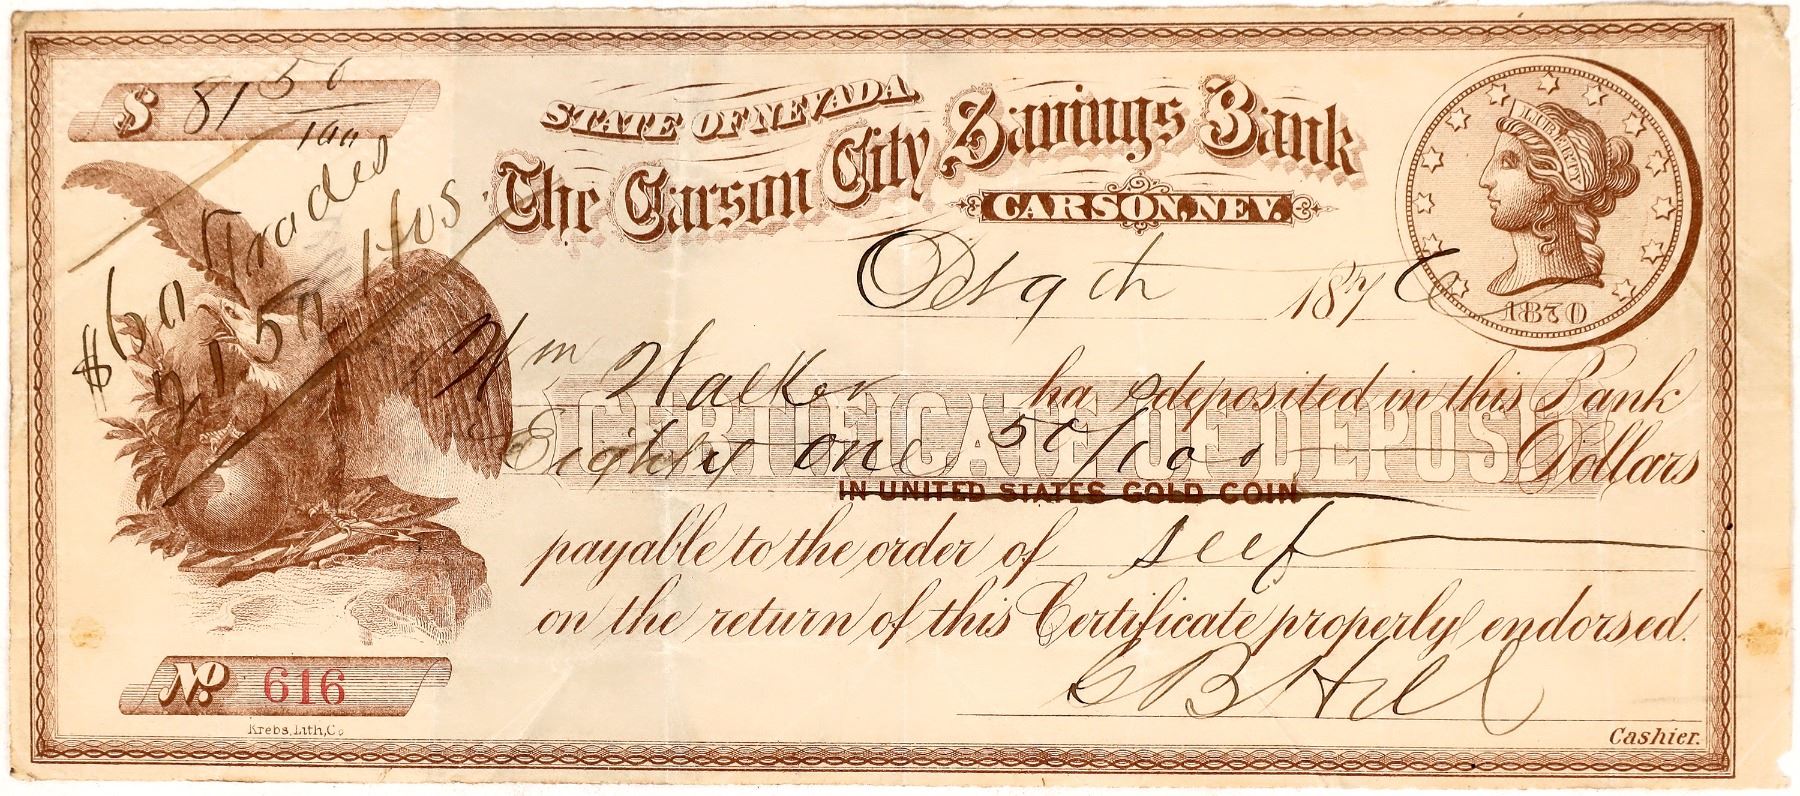 $ 81 50/100
STATE OF NEVADA.
The Carson City Savings Bank
CARSON, NEV.
LIBERTY
1870
Oct 9th 1876
$60 Trades
21 50 Hfos
Wm Walker has deposited in this Bank
CERTIFICATE OF DEPOSIT
Eighty one 50/100 Dollars
IN UNITED STATES GOLD COIN
payable to the order of self
on the return of this Certificate properly endorsed.
No. 616
C B Hill
Krebs, Lith, Co
Cashier.